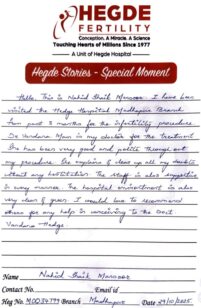 HEGDE
FERTILITY
Conception. A Miracle. A Science
Touching Hearts of Millions Since 1977
A Unit of Hegde Hospital
Hegde Stories - Special Moment
Hello, This is Nahid Shaik Mansoor. I have been
visited the Hegde Hospital Madhapur Branch
from past 3 months for the infertility procedure
Dr Vandana Mam is my doctor for the treatment
She has been very good and polite through out
my procedure. She explains & clear up all my doubts
without any hesitation. The staff is also supportive
in every manner. The hospital environment is also
very clean & green. I would love to recommend
others for any help in conceiving to the Dr
Vandana Hegde
Name Nahid Shaik Mansoor
Contact No. Email id
Hsg No. Branch Madhapur Date 29/10/2025